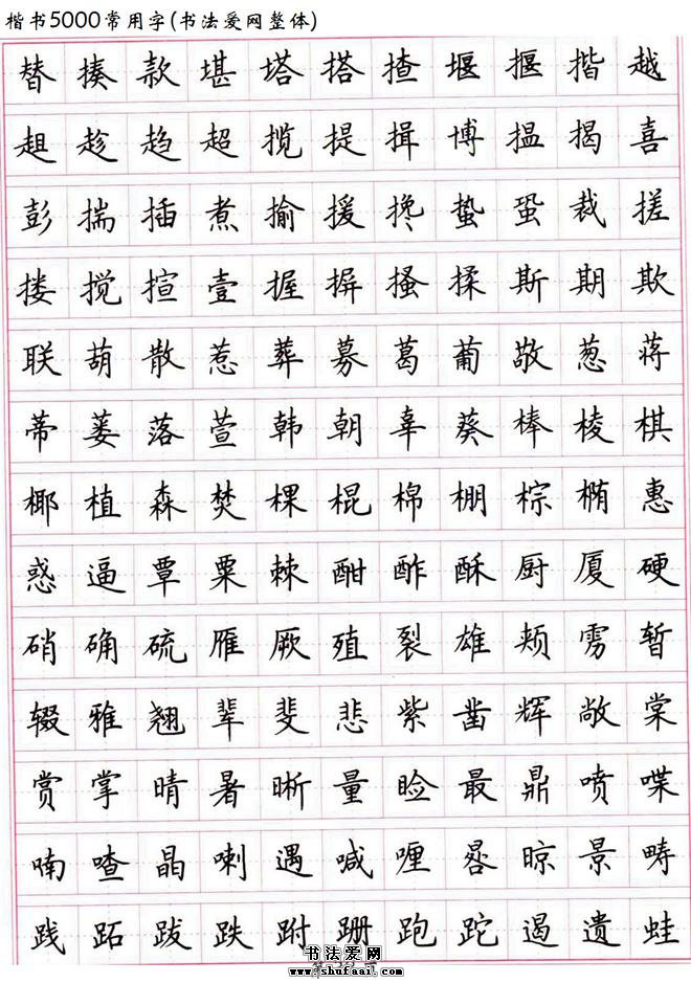 楷书5000常用字(书法爱网整体)
替揍款堪塔搭揸堰揠揩越
趄趁趋超揽提揖博揾揭喜
彭揣插煮揄援搀蛰蛩裁搓
搂搅揎壹握摒搔揉斯期欺
联葫散惹葬募葛葡敬葱蒋
蒂蒌落萱韩朝辜葵棒棱棋
椰植森焚棵棍棉棚棕椭惠
惑逼覃粟棘酣酢酥厨厦硬
硝确硫雁厥殖裂雄颊雳暂
辍雅翘辈斐悲紫凿辉敞棠
赏掌晴暑晰量睑最鼎喷喋
喃喳晶喇遇喊喱晷晾景畴
践跖跋跌跗跚跑跎遏遗蛙
书法爱网
www.shufaai.com